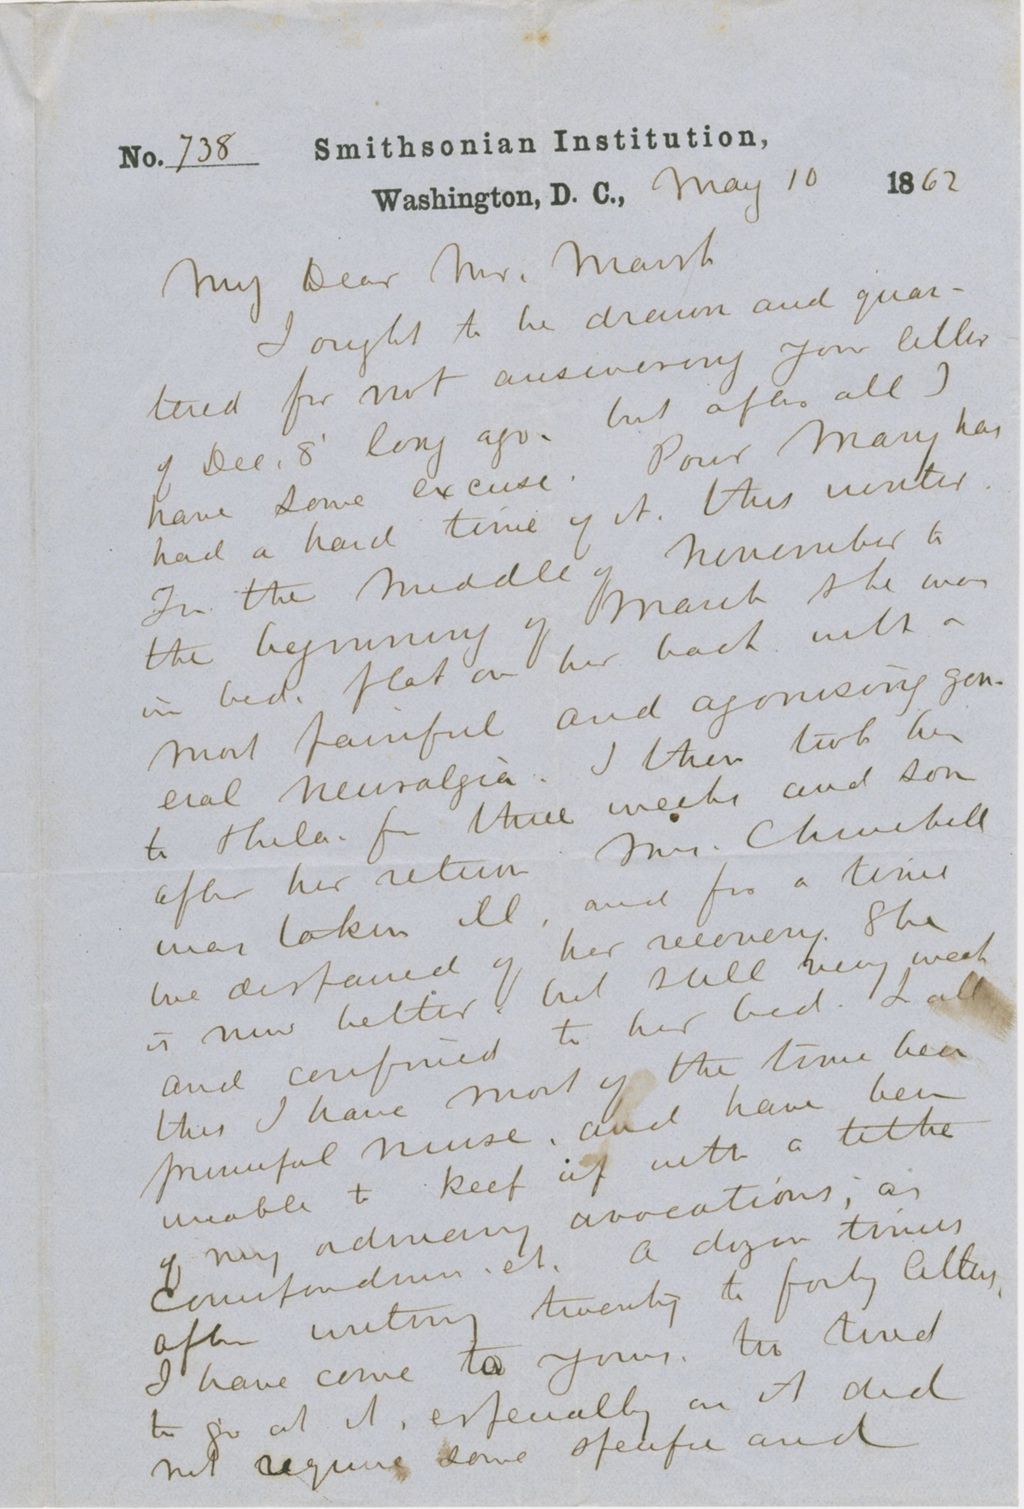 No. 738 Smithsonian Institution,
Washington, D. C., May 10 1862
My Dear Mr. Marsh
I ought to be drawn and quar-
tered for not answering your letter
of Dec. 8 long ago. but after all I
have some excuse. Poor Mary has
had a hard time of it. this winter.
In the middle of November to
the beginning of March she was
in bed. flat on her back with a
most painful and agonising gen-
eral neuralgia. I then took her
to Phila. for three weeks and soon
after her return Mrs. Churchill
was taken ill, and for a time
we despaired of her recovery. She
is now better, but still very weak
and confined to her bed. In all
this I have most of the time been
principal nurse, and have been
unable to keep up with a tithe
of my ordinary avocations, as
correspondence. et. A dozen times
after writing twenty to forty letters,
I have come to yours. too tired
to go at it, especially as it did
not require some specific and